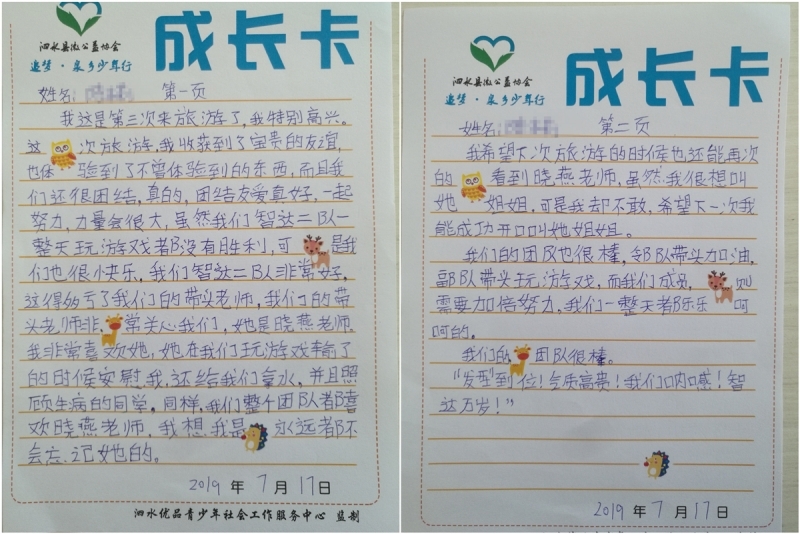 泗水县微公益协会
追梦·泉乡少年行
成长卡
姓名: 第一页
我这是第三次来旅游了,我特别高兴。
这次旅游,我收获到了宝贵的友谊,
也体验到了不曾体验到的东西,而且我
们还很团结,真的,团结友爱真好,一起
努力,力量会很大,虽然我们智达二队一
整天玩游戏都没有胜利,可是我
们也很小快乐,我们智达二队非常好,
这得多亏了我们的带头老师,我们的带
头老师非常关心我们,她是晓燕老师。
我非常喜欢她,她在我们玩游戏输了
的时候安慰我,还给我们拿水,并且照
顾生病的同学。同样,我们整个团队都喜
欢晓燕老师,我想,我是永远都不
会忘记她的。
2019年7月17日
泗水优品青少年社会工作服务中心 监制
泗水县微公益协会
追梦·泉乡少年行
成长卡
姓名: 第二页
我希望下次旅游的时候也还能再次
的看到晓燕老师,虽然我很想叫
她姐姐,可是我却不敢,希望下一次我
能成功开口叫她姐姐。
我们的团队也很棒,令队带头加油,
副队带头玩游戏,而我们成员,则
需要加倍努力,我们一整天都乐乐呵
呵的。
我们的团队很棒。
“发型”到位!气质高贵!我们呐感!智
达万岁!”
2019年7月17日